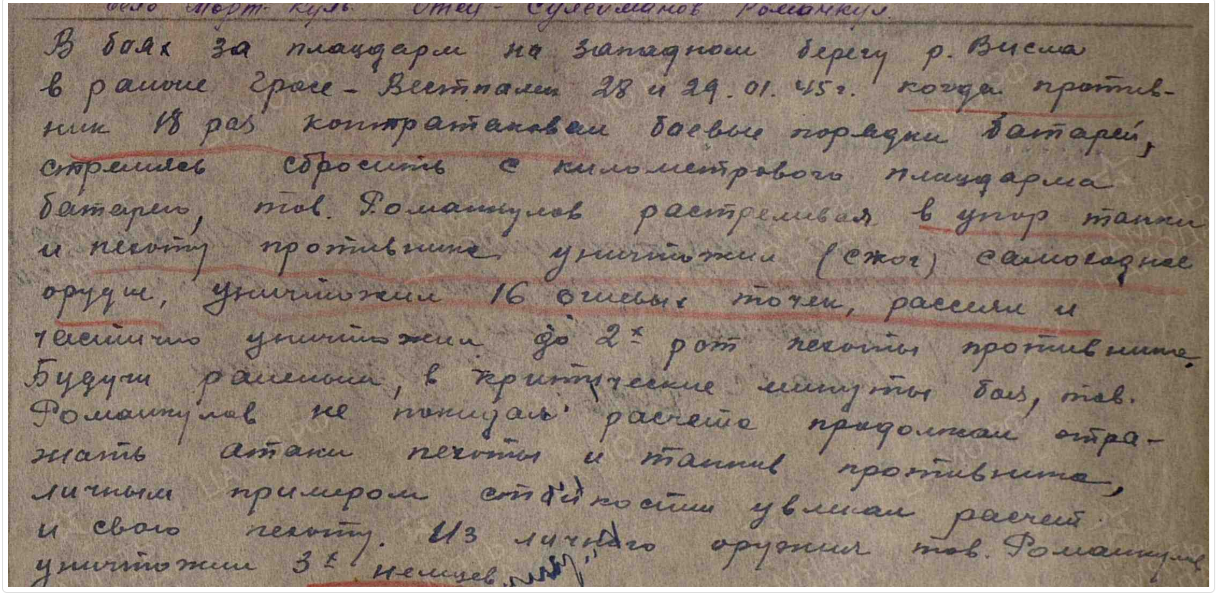 село Март-куль. Отец - Сулейманов Романкул.
В боях за плацдарм на западном берегу р. Висла
в районе Гросс-Вестпален 28 и 29.01.45г. когда против-
ник 18 раз контратаковал боевые порядки батареи,
стремясь сбросить с километрового плацдарма
батарею, тов. Романкулов растреливая в упор танки
и пехоту противника уничтожил (сжог) самоходное
орудие, уничтожил 16 огневых точек, рассеял и
частично уничтожил до 2х рот пехоты противника.
Будучи раненым, в критические минуты боя, тов.
Романкулов не покидая расчета продолжал отра-
жать атаки пехоты и танков противника,
личным примером стойкости увлекал расчет
и свою пехоту. Из личного оружия тов. Романкулов
уничтожил 3х немцев.